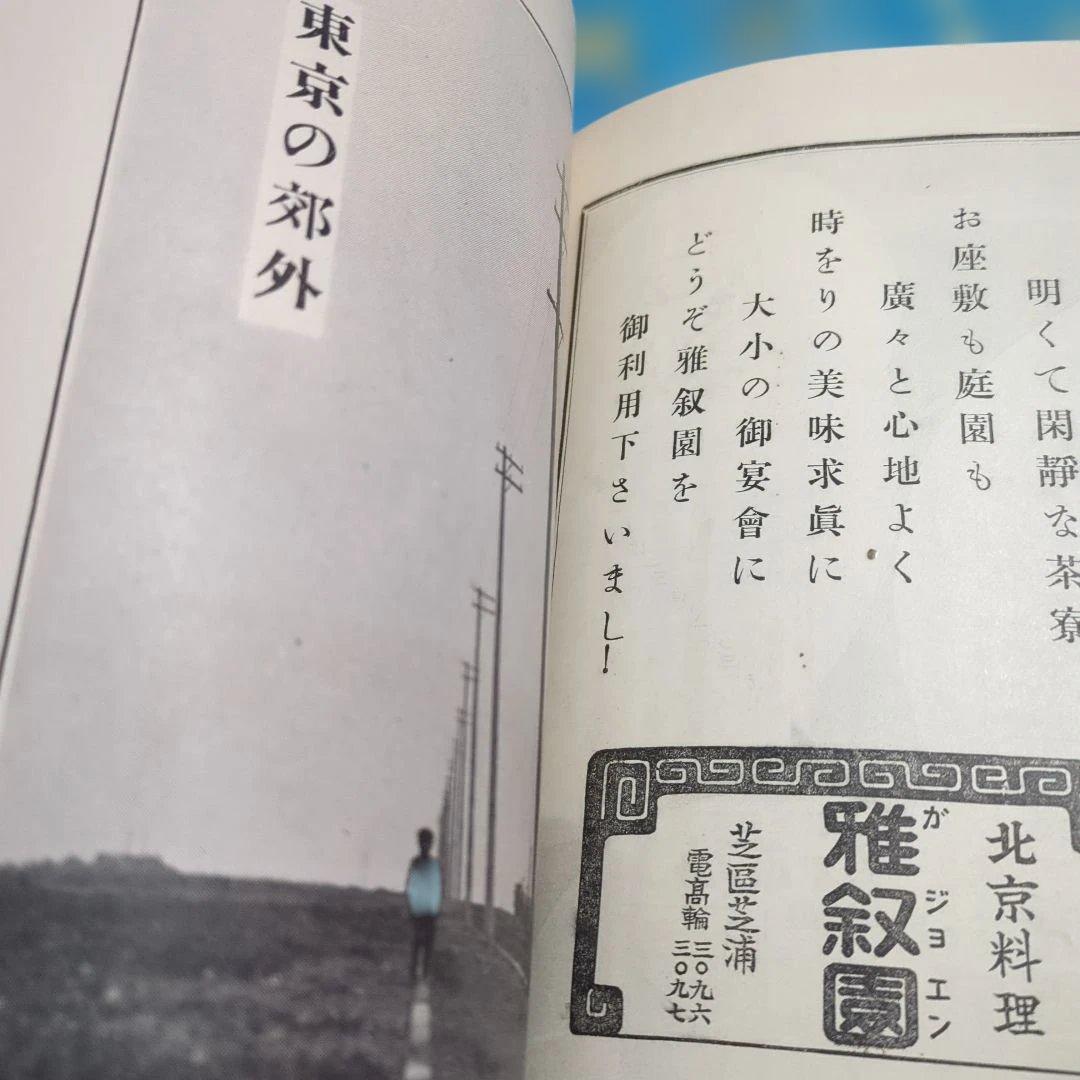 東京の郊外
明くて閑靜な茶寮
お座敷も庭園も
廣々と心地よく
時をりの美味求眞に
大小の御宴會に
どうぞ雅叙園を
御利用下さいまし!
北京料理
雅叙園
がジヨエン
芝區芝浦
電高輪 三〇九六
三〇九七